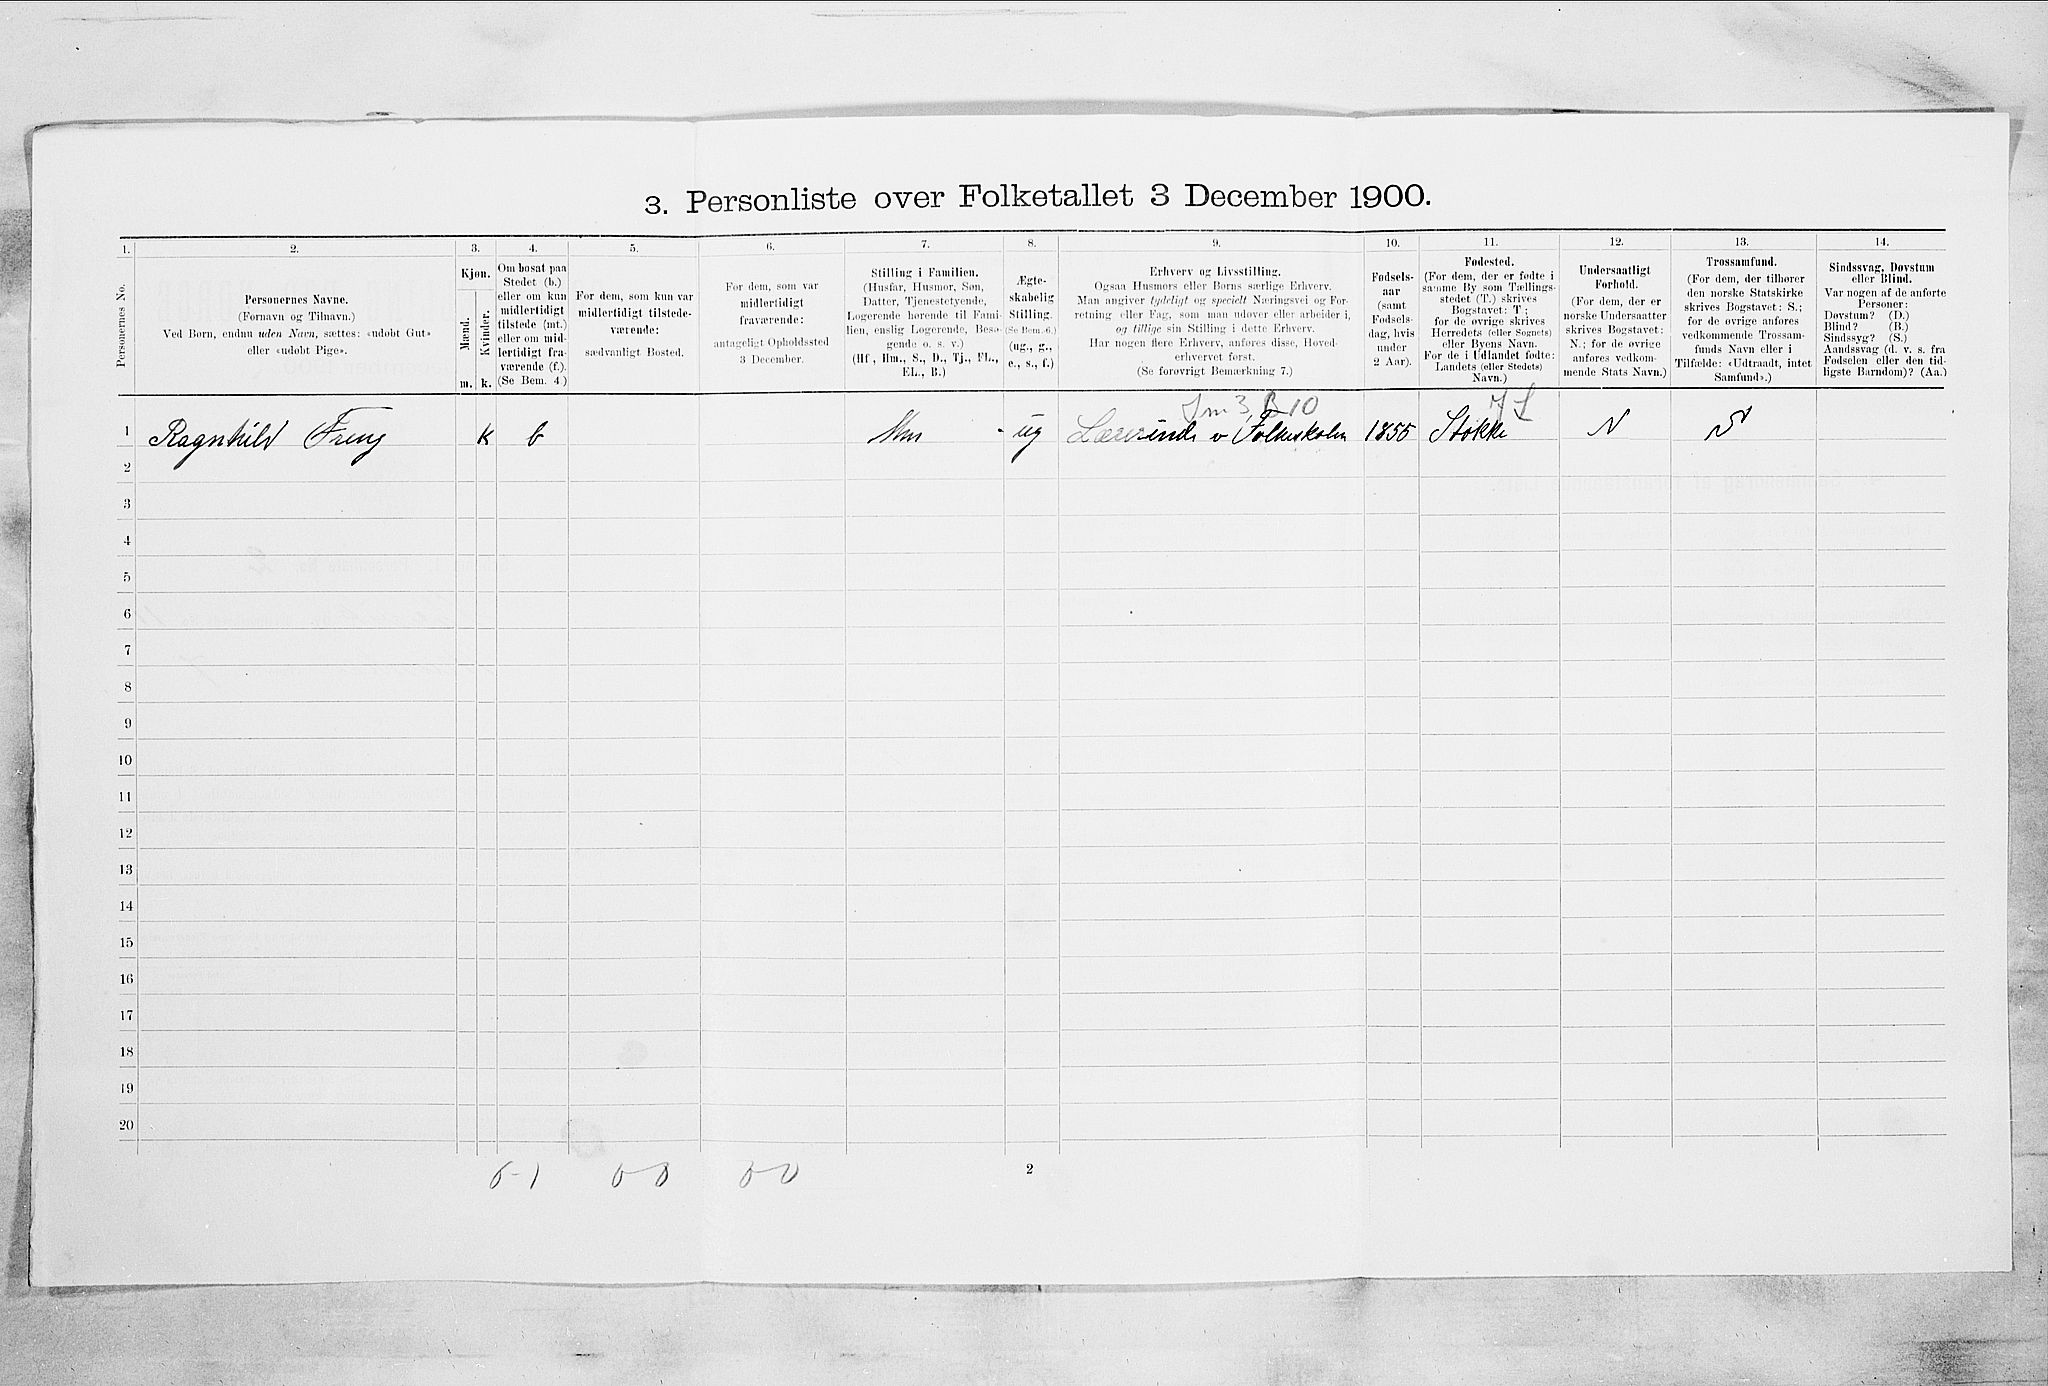 3. Personliste over Folketallet 3 December 1900.
1. 2. 3. 4. 5. 6. 7. 8. 9. 10. 11. 12. 13. 14.
Personernes No.
Personernes Navne.
(Fornavn og Tilnavn.)
Ved Børn, endnu uden Navn, sættes: «udøbt Gut»
eller «udøbt Pige».
Kjøn.
Mænd.
Kvinder.
m. k.
Om bosat paa
Stedet (b.)
eller om kun
midlertidigt
tilstede (mt.)
eller om mid-
lertidigt fra-
værende (f.).
(Se Bem. 4.)
For dem, som kun var
midlertidigt tilstede-
værende:
sædvanligt Bosted.
For dem, som var
midlertidigt
fraværende:
antageligt Opholdssted
3 December.
Stilling i Familien.
(Husfar, Husmor, Søn,
Datter, Tjenestetyende,
Logerende hørende til Fami-
lien, enslig Logerende, Besø-
gende o. s. v.)
(Hf., Hm., S., D., Tj., FL.,
EL., B.)
Ægte-
skabelig
Stilling.
(Se Bem. 6.)
(ug., g.,
e., s., f.)
Erhverv og Livsstilling.
Ogsaa Husmors eller Børns særlige Erhverv.
Man angiver tydeligt og specielt Næringsvei og For-
retning eller Fag, som man udøver eller arbeider i,
og tillige sin Stilling i dette Erhverv.
Har nogen flere Erhverv, anføres disse, Hoved-
erhvervet først.
(Se forøvrigt Bemærkning 7.)
Fødsels-
aar
(samt
Fødsels-
dag, hvis
under
2 Aar).
Fødested.
(For dem, der er fødte i
samme By som Tællings-
stedet (T.) skrives
Bogstavet: T.;
for de øvrige skrives
Herredets (eller Sognets)
eller Byens Navn.
For de i Udlandet fødte:
Landets (eller Stedets)
Navn.)
Undersaatligt
Forhold.
(For dem, der er
norske Undersaatter
skrives Bogstavet:
N.; for de øvrige
anføres vedkom-
mende Stats Navn.)
Trossamfund.
(For dem, der tilhører
den norske Statskirke
skrives Bogstavet: S.;
for de øvrige anføres
vedkommende Trossam-
funds Navn eller i
Tilfælde: «Udtraadt, intet
Samfund».)
Sindssvag, Døvstum
eller Blind.
Var nogen af de anførte
Personer:
Døvstum? (D.)
Blind? (B.)
Sindssyg? (S.)
Aandssvag (d. v. s. fra
Fødselen eller den tid-
ligste Barndom)? (Aa.)
1 Ragnhild k b Hm ug Lærerinde v Folkeskolen 1855 Stokke N S
2
3
4
5
6
7
8
9
10
11
12
13
14
15
16
17
18
19
20
0-1 0-0 0-0
2